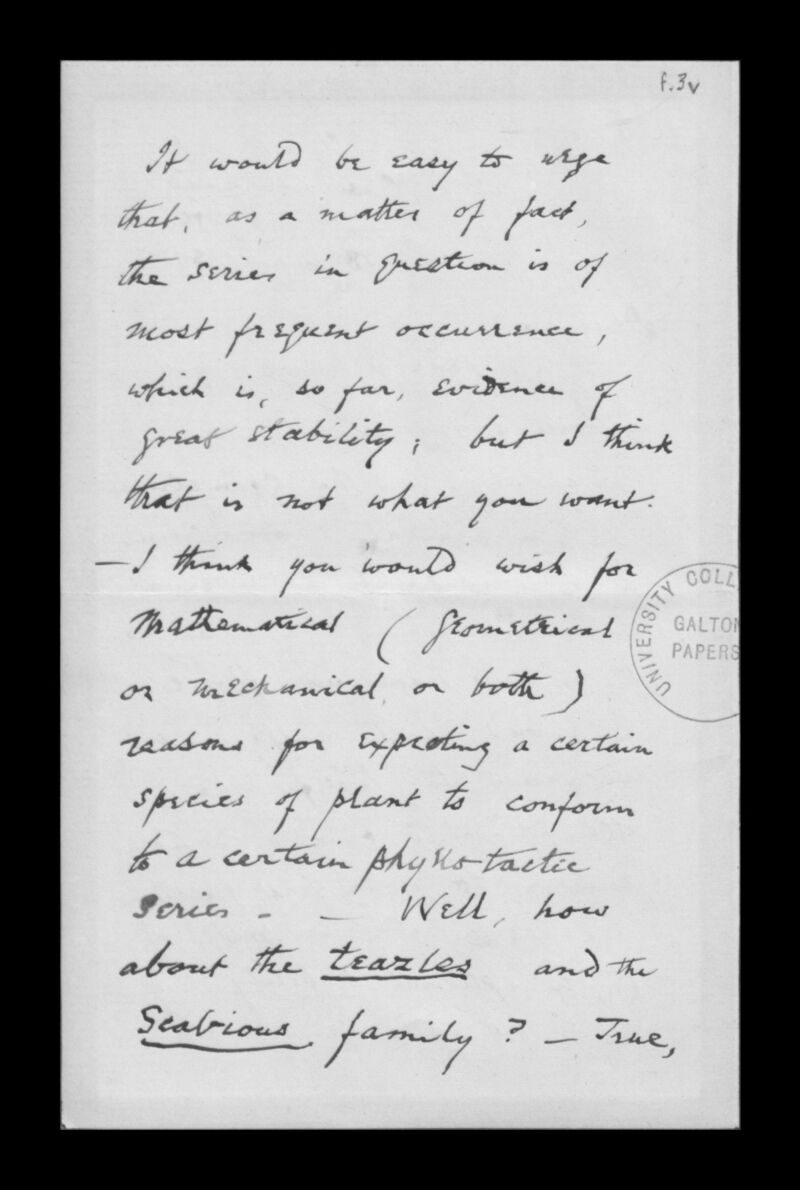 f.3v
It would be easy to urge
that, as a matter of fact,
the series in question is of
most frequent occurrence,
which is, so far, evidence of
great stability; but I think
that is not what you want.
— I think you would wish for
Mathematical (Geometrical
or mechanical, or both)
reasons for expecting a certain
species of plant to conform
to a certain phyllo-tactic
series - — Well, how
about the teazles and the
Scabious family? — True,
UNIVERSITY COLL
GALTON
PAPERS